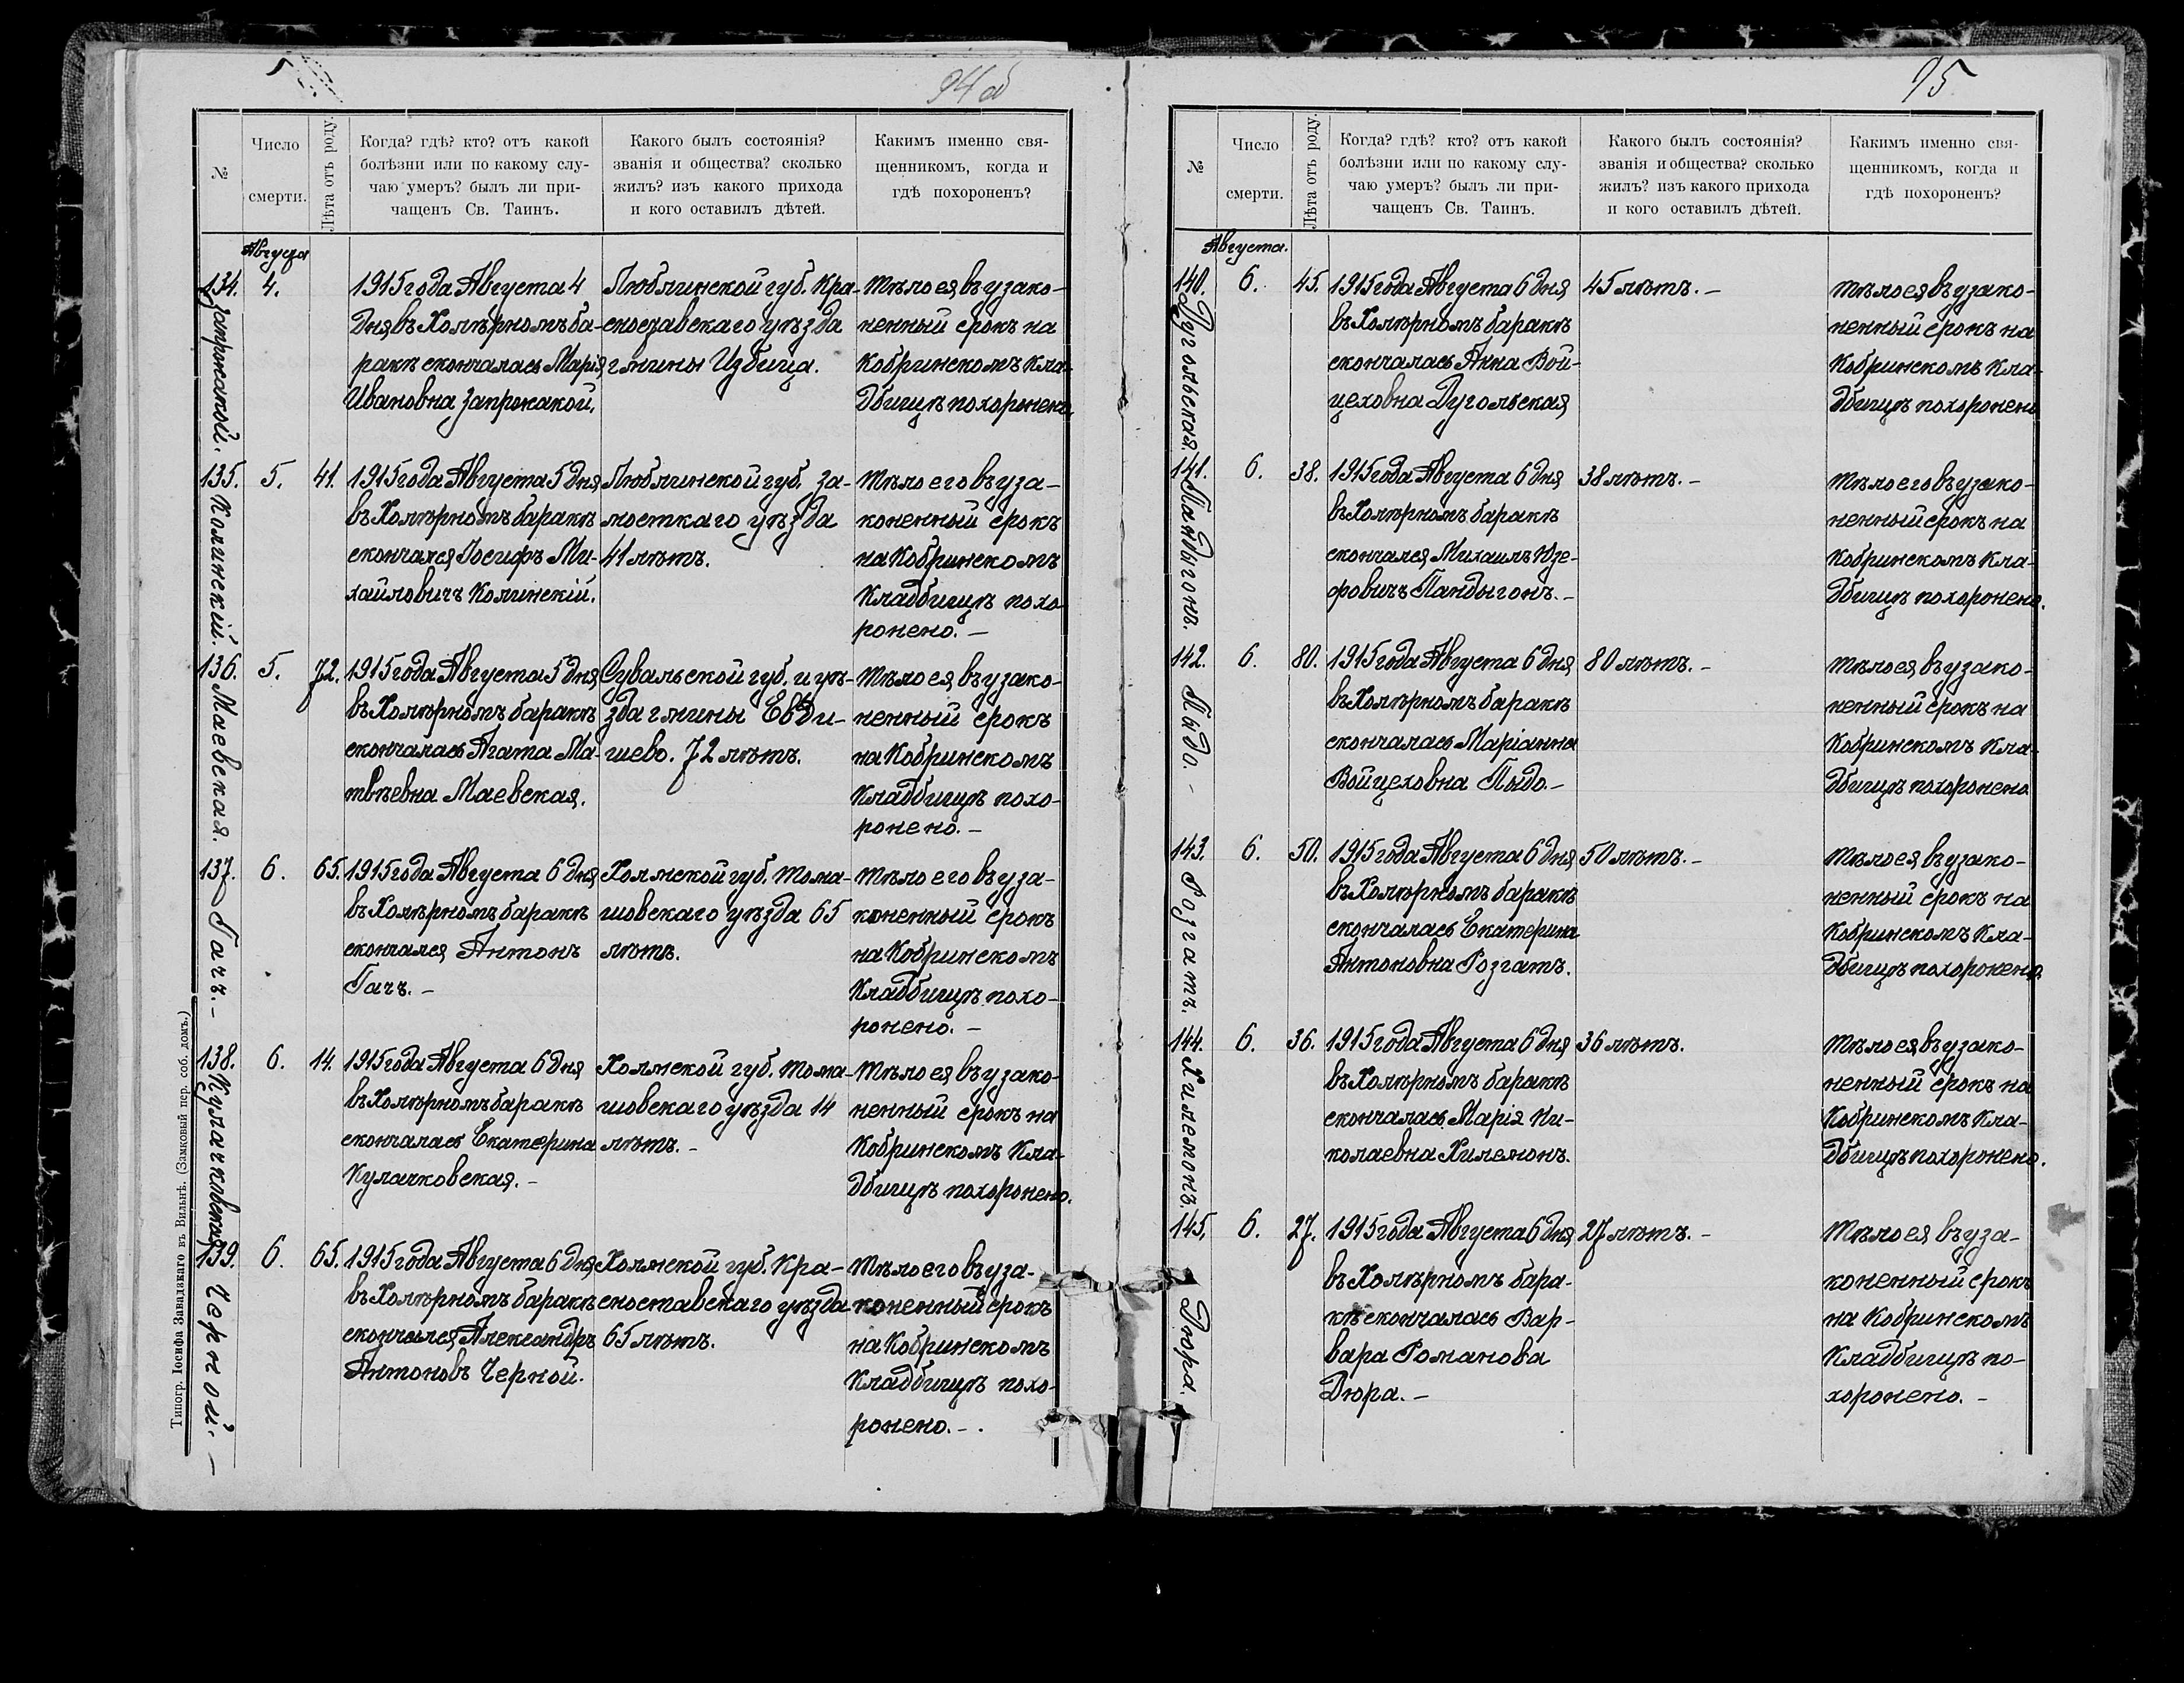 94 об
№
Число
смерти.
Лѣта отъ роду.
Когда? гдѣ? кто? отъ какой
болѣзни или по какому слу-
чаю умеръ? былъ ли при-
чащенъ Св. Таинъ.
Какого былъ состоянія?
званія и общества? сколько
жилъ? изъ какого прихода
и кого оставилъ дѣтей.
Каким именно свя-
щенникомъ, когда и
гдѣ похороненъ?
Августа
134.
4.
1915 года Августа 4
дня въ Холерномъ ба-
ракѣ скончалась Марія
Ивановна
Люблинской губ. Кра-
уѣзда
гмины Избица.
Тѣло ея въ узако-
ненный срокъ на
Кобринскомъ Кла-
дбищѣ похоронено.
135. Колинскій.
5.
41.
1915 года Августа 5 дня
въ Холерномъ баракѣ
скончался Іосифъ Ми-
хайловичъ Колинскій.
Люблинской губ. За-
мосткаго уѣзда
41 лѣтъ.
Тѣло его въ уза-
коненный срокъ
на Кобринскомъ
Кладбищѣ похо-
ронено. –
136. Маевская.
5.
72.
1915 года Августа 5 дня
въ Холерномъ баракѣ
скончалась Агата Ма-
твѣевна Маевская.
Сувальской губ. и уѣ-
зда гмины Евди-
шево. 72 лѣтъ.
Тѣло ея въ узако-
ненный срокъ
на Кобринскомъ
Кладбищѣ похо-
ронено. –
137. Гачъ. –
6.
65.
1915 года Августа 6 дня
въ Холерномъ баракѣ
скончался Антонъ
Гачъ. –
Холмской губ. Тома-
шовскаго уѣзда 65
лѣтъ.
Тѣло его въ уза-
коненный срокъ
на Кобринскомъ
Кладбищѣ похо-
ронено. –
138. Кулачковская
6.
14.
1915 года Августа 6 дня
въ Холерномъ баракѣ
скончалась Екатерина
Кулачковская. –
Холмской губ. Тома-
шовскаго уѣзда 14
лѣтъ. –
Тѣло ея въ узако-
ненный срокъ на
Кобринскомъ Кла-
дбищѣ похоронено.
139. Черной. –
6.
65.
1915 года Августа 6 дня
въ Холерномъ баракѣ
скончался Александръ
Антоновъ Черной.
Холмской губ. Кра-
сноставскаго уѣзда
65 лѣтъ.
Тѣло его въ уза-
коненный срокъ
на Кобринскомъ
Кладбищѣ похо-
ронено. – .
Типогр. Іосифа Завадзкаго въ Вильнѣ. (Замковый пер. соб. домъ.)
95
№
Число
смерти.
Лѣта отъ роду.
Когда? гдѣ? кто? отъ какой
болѣзни или по какому слу-
чаю умеръ? былъ ли при-
чащенъ Св. Таинъ.
Какого былъ состоянія?
званія и общества? сколько
жилъ? изъ какого прихода
и кого оставилъ дѣтей.
Каким именно свя-
щенникомъ, когда и
гдѣ похороненъ?
Августа.
140. Дугольская.
6.
45.
1915 года Августа 6 дня
въ Холерномъ баракѣ
скончалась Анна Вой-
цеховна Дугольская
45 лѣтъ. –
Тѣло ея въ узако-
ненный срокъ на
Кобринскомъ Кла-
дбищѣ похоронено
141. Пандыгонъ.
6.
38.
1915 года Августа 6 дня
въ Холерномъ баракѣ
скончался Михаилъ Юзе-
фовичъ Пандыгонъ. –
38 лѣтъ. –
Тѣло его въ узако-
ненный срокъ на
Кобринскомъ Кла-
дбищѣ похоронено.
142. Пыдо. –
6.
80.
1915 года Августа 6 дня
въ Холерномъ баракѣ
скончалась Маріанна
Войцеховна Пыдо. –
80 лѣтъ. –
Тѣло ея въ узако-
ненный срокъ на
Кобринскомъ Кла-
дбищѣ похоронено
143. Розгатъ.
6.
50.
1915 года Августа 6 дня
въ Холерномъ баракѣ
скончалась Екатерина
Антоновна Розгатъ.
50 лѣтъ. –
Тѣло ея въ узако-
ненный срокъ на
Кобринскомъ Кла-
дбищѣ похоронено.
144. Хилемонъ.
6.
36.
1915 года Августа 6 дня
въ Холерномъ баракѣ
скончалась Марія Ни-
колаевна Хилемонъ.
36 лѣтъ.
Тѣло ея въ узако-
ненный срокъ на
Кобринскомъ Кла-
дбищѣ похоронено.
145. Дюра.
6.
27.
1915 года Августа 6 дня
въ Холерномъ бара-
кѣ скончалась Вар-
вара Романова
Дюра. –
27 лѣтъ. –
Тѣло ея въ уза-
коненный срокъ
на Кобринскомъ
Кладбищѣ по-
хоронено. –